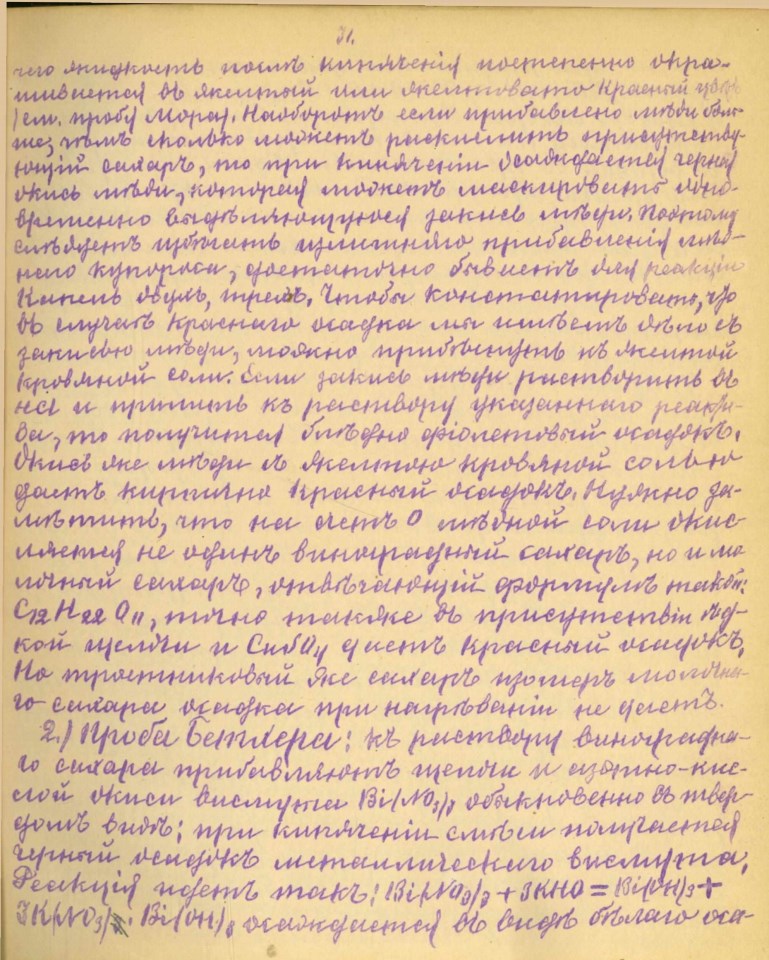 31.
чего жидкость послѣ кипяченія постепенно окра-
шивается въ желтый или желтовато красный цвѣтъ
(см. пробу Мора). Наоборотъ если прибавлено мѣди боль-
ше, чѣмъ сколько можетъ раскислить присутству-
ющій сахаръ, то при кипяченіи осаждается черная
окись мѣди, которая можетъ маскировать одно-
временно выдѣляющуюся закись мѣди. Поэтому
слѣдуетъ избѣгать излишняго прибавленія мѣд-
наго купороса, достаточно бываетъ для реакціи
капель двухъ, трехъ. Чтобы констатировать, что
въ случаѣ краснаго осадка мы имѣемъ дѣло съ
закисью мѣди, можно прибѣгнуть къ желтой
кровяной соли. Если закись мѣди растворить въ
HCl и прилить къ раствору указаннаго реакти-
ва, то получится блѣдно фіолетовый осадокъ.
Окись же мѣди съ желтою кровяной солью
даетъ кирпично красный осадокъ. Нужно за-
мѣтить, что на счетъ O мѣдной соли окис-
ляется не одинъ виноградный сахаръ, но и мо
лочный сахаръ, отвѣчающій формулѣ такой:
C12H22O11, точно также въ присутствіи ѣд-
кой щелочи и CuSO4 даетъ красный осадокъ.
Но тростниковый же сахаръ изомеръ молочна-
го сахара осадка при нагрѣваніи не даетъ.
2.) Проба Бетхера: къ раствору винограднa-
го сахара прибавляютъ щелочи и азотно-кис-
лой окиси висмута Bi(NO3)3 обыкновенно въ твер-
домъ видѣ; при кипяченіи смѣси получается
черный осадокъ металлическаго висмута.
Реакція идетъ такъ: Bi(NO3)3 + 3KHO = Bi(OH)3 +
3K(NO3). Bi(OH)3 осаждается въ видѣ бѣлаго оса-